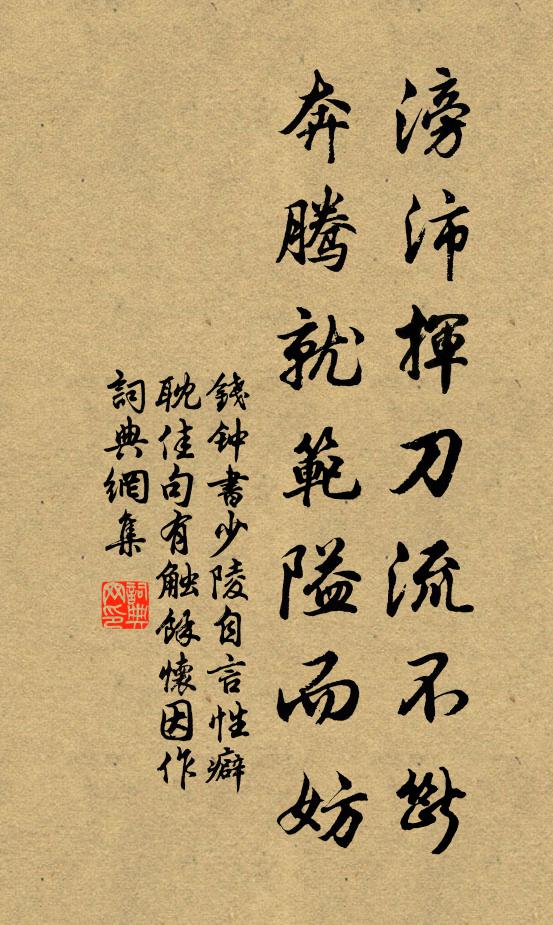 滂沛揮刀流不斷
奔騰就範隘而妨
錢钟書少陵自言性癖
耽佳句有触餘懷因作
詞典網集
詞典網印